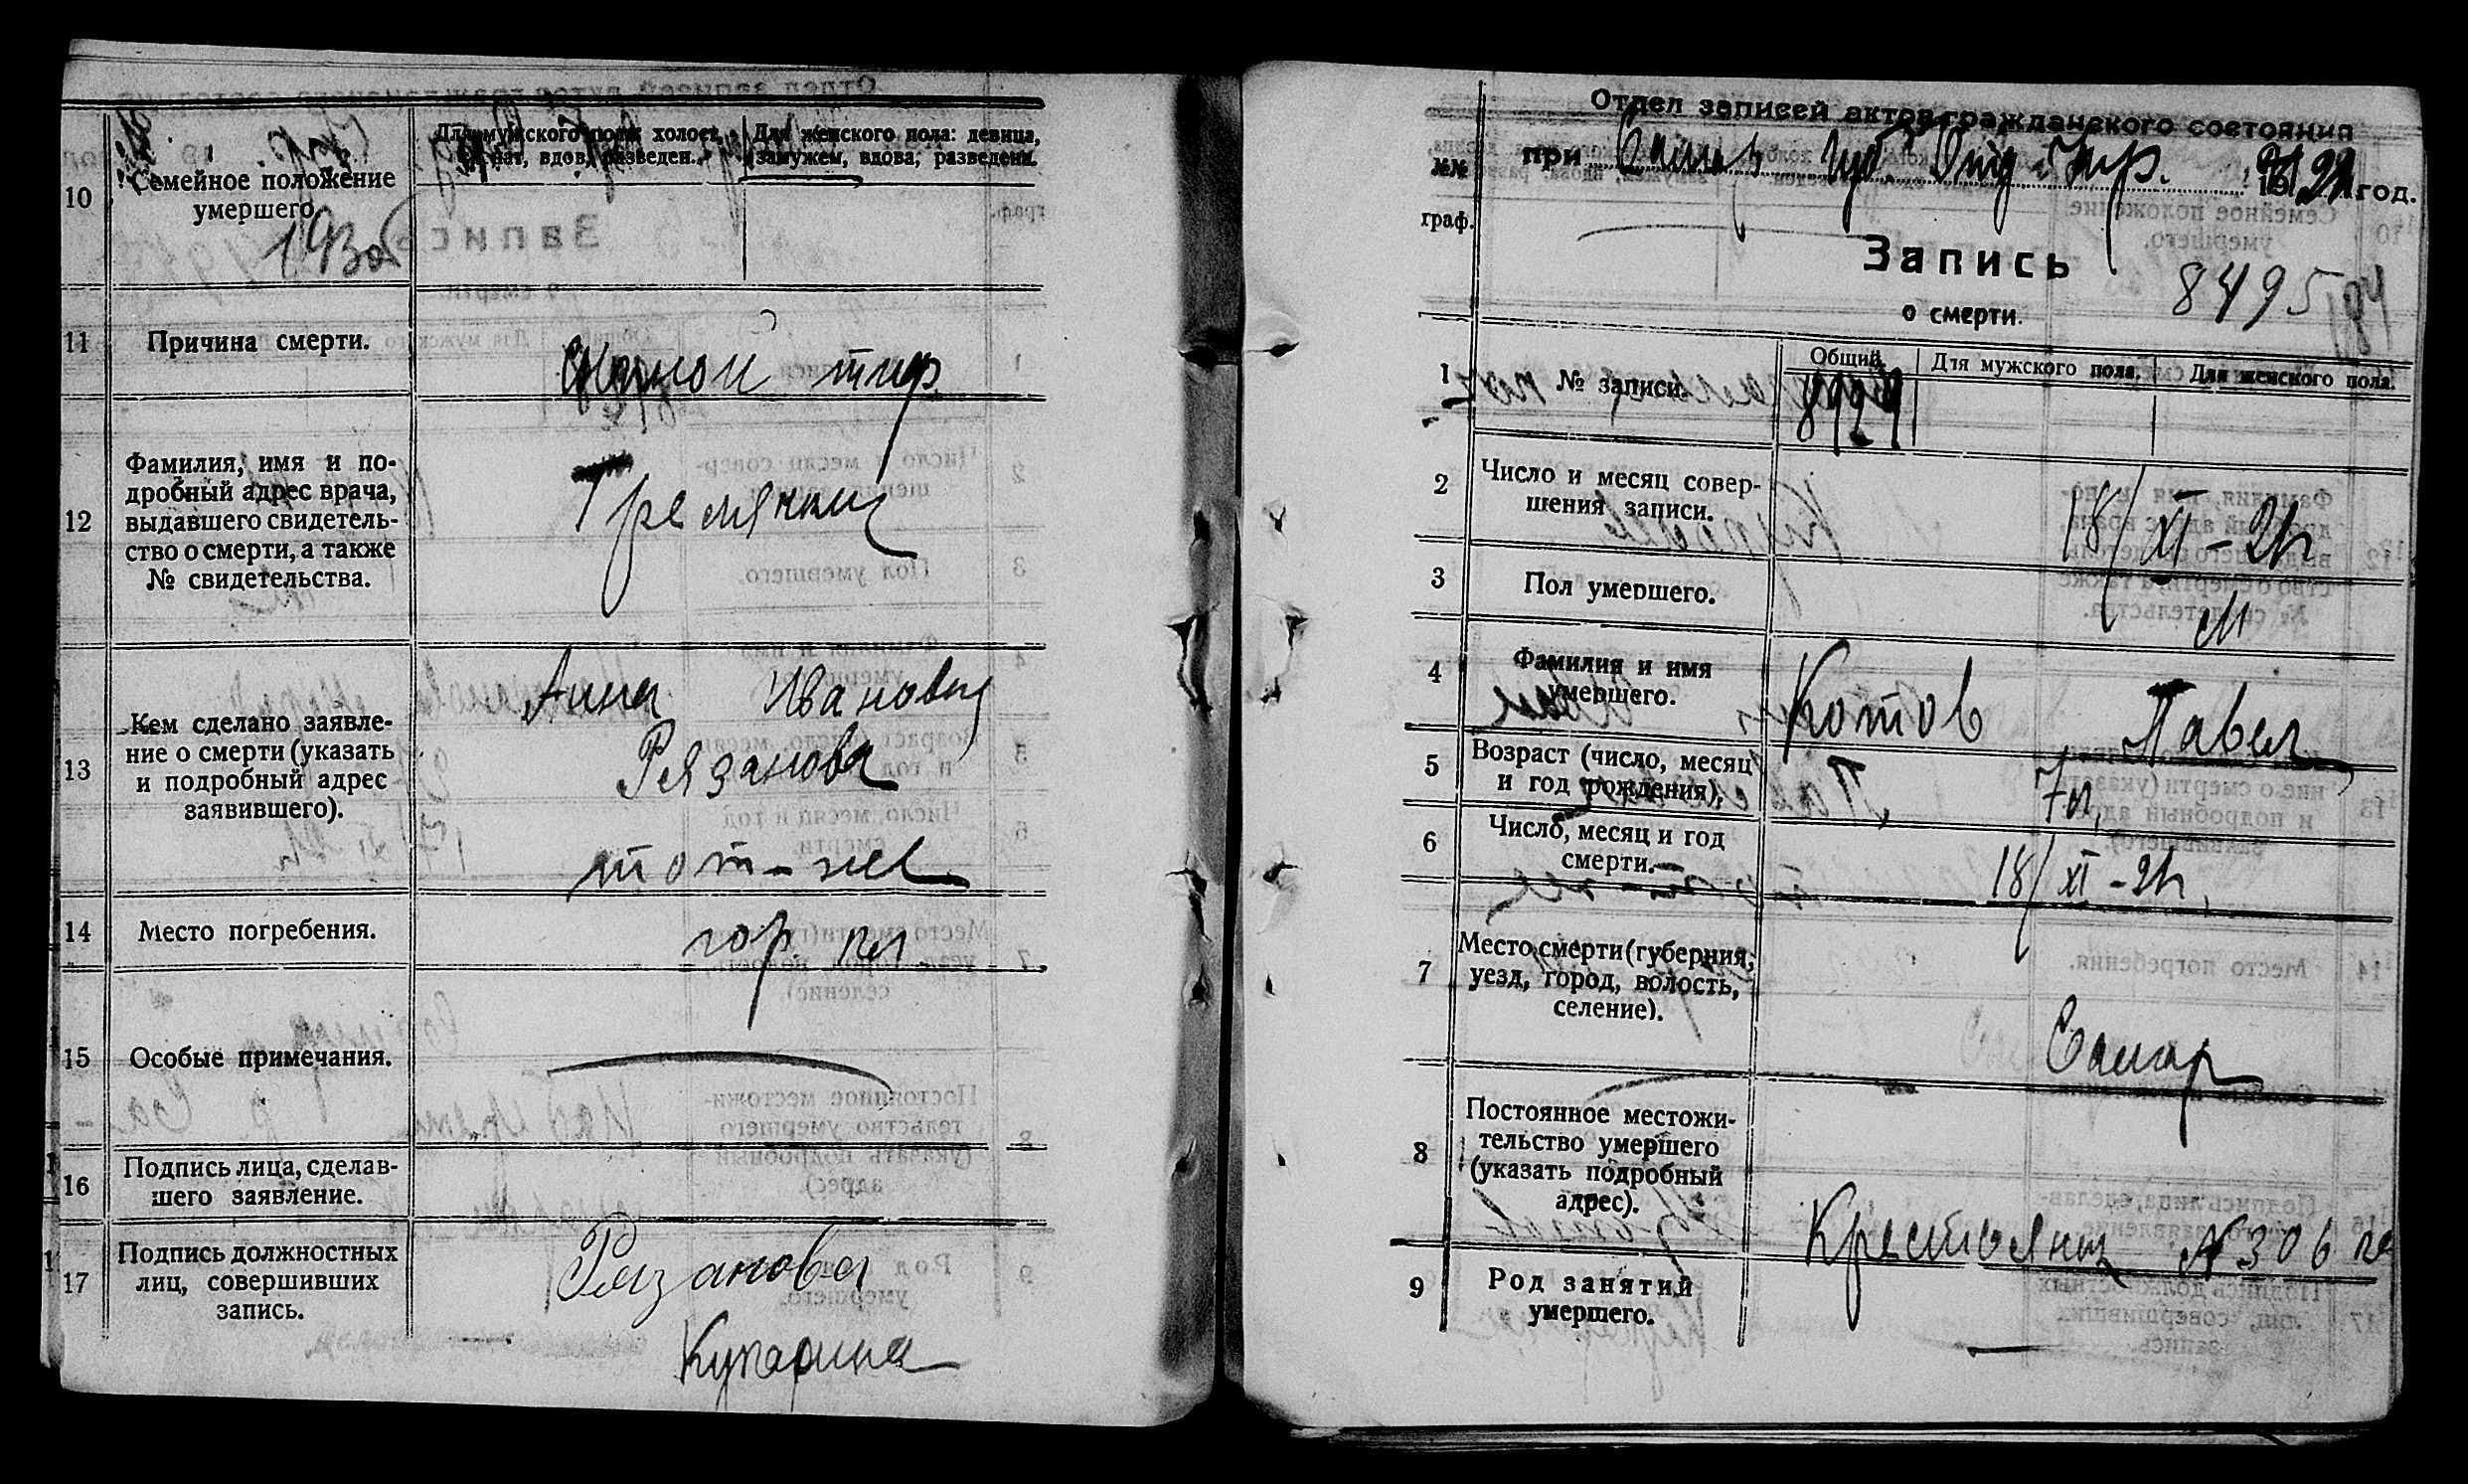 10
Семейное положение
умершего.
193об
Для мужского пола: холост,
женат, вдов, разведен.
Для женского пола: девица,
замужем, вдова, разведена.
11
Причина смерти.
тиф
12
Фамилия, имя и по-
дробный адрес врача,
выдавшего свидетель-
ство о смерти, а также
№ свидетельства.
13
Кем сделано заявле-
ние о смерти (указать
и подробный адрес
заявившего).
Анна Ивановна
Рязанова
тот-же
14
Место погребения.
гор кл.
15
Особые примечания.
16
Подпись лица, сделав-
шего заявление.
17
Подпись должностных
лиц, совершивших
запись.
Рязанова
Купарина
Отдел записей актов гражданского состояния
при Самар Губ. Отд Упр. год.
№№
граф.
Запись
о смерти.
8495
194
1
№ записи.
Общий.
Для мужского пола.
Для женского пола.
2
Число и месяц совер-
шения записи.
18/XI-21г
3
Пол умершего.
М
4
Фамилия и имя
умершего.
Котов Павел
5
Возраст (число, месяц
и год рождения).
7л,
6
Число, месяц и год
смерти.
18/XI-21г,
7
Место смерти (губерния,
уезд, город, волость,
селение).
Самар
8
Постоянное местожи-
тельство умершего
(указать подробный
адрес).
9
Род занятий
умершего.